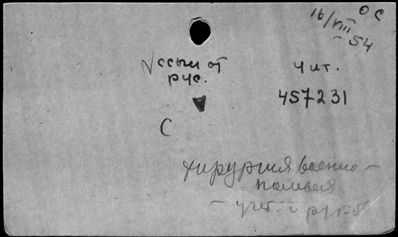 ОС
16/VIII
– 54
√ ссыл от
рус.
Чит.
457231
С
хирургия военно –
полевая
– учеб. и рук.